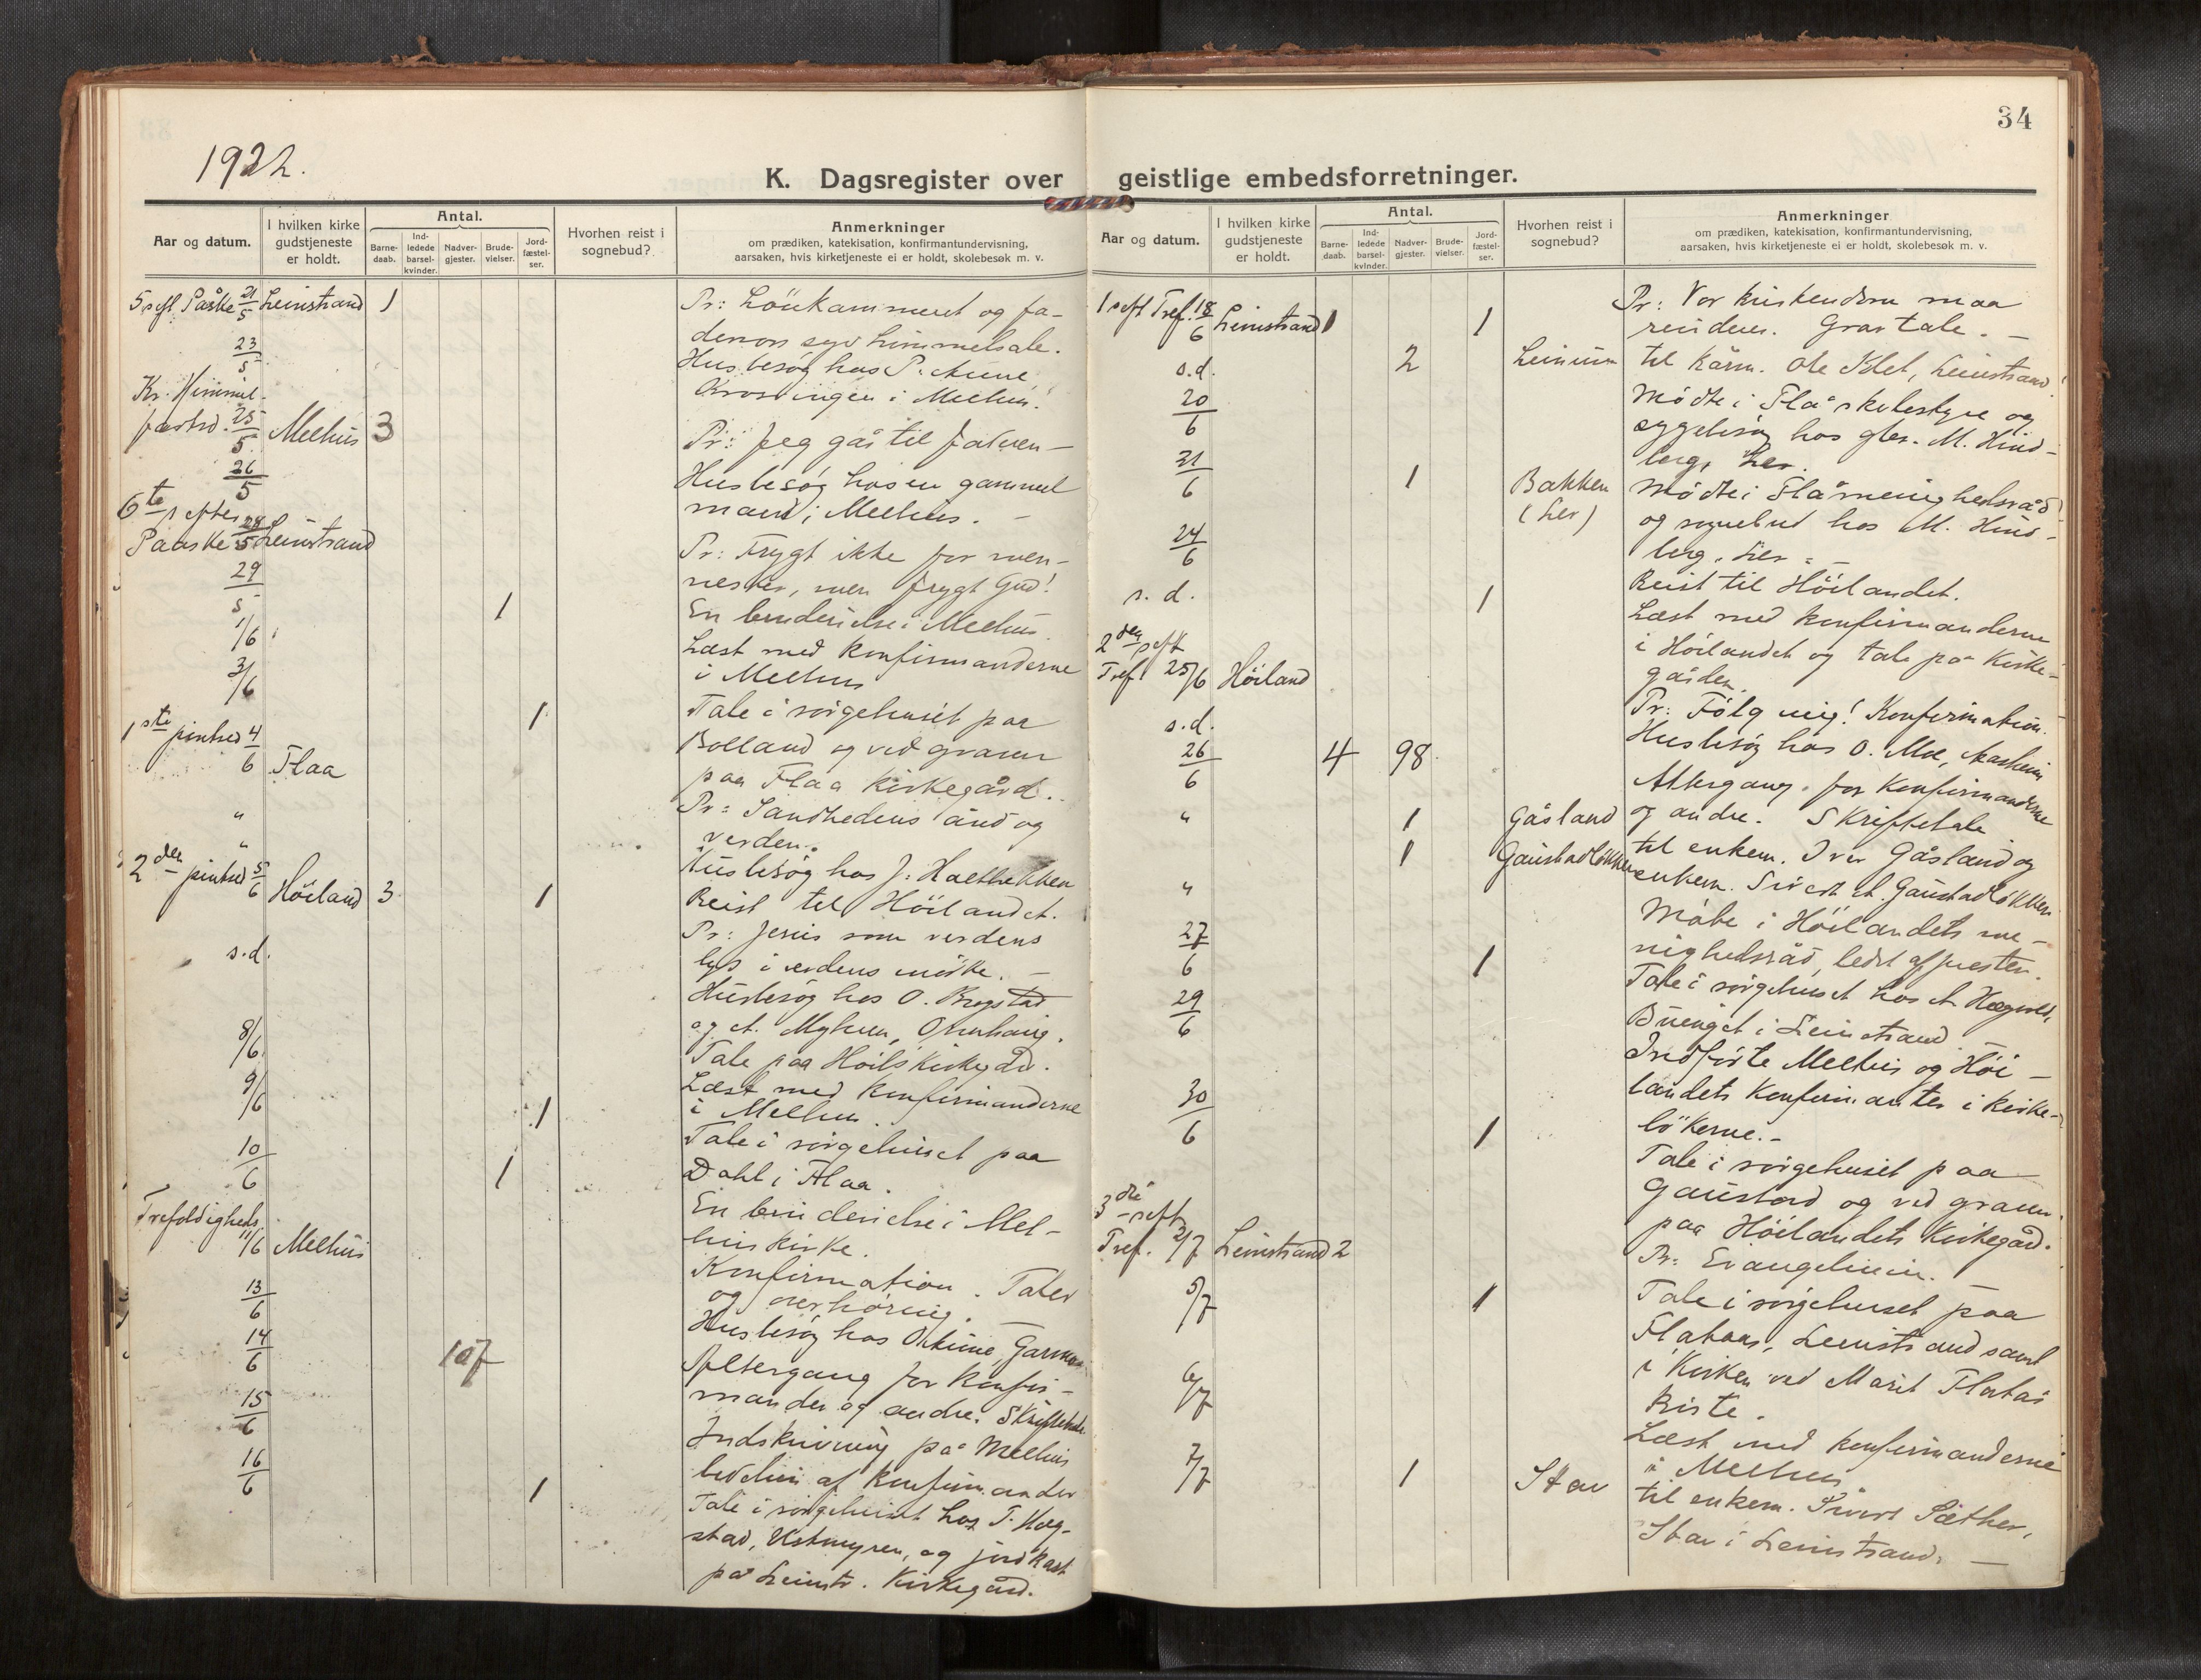 34
1922.
K. Dagsregister over geistlige embedsforretninger.
Aar og datum.
I hvilken kirke gudstjeneste er holdt.
Antal.
Barne-daab.
Ind-ledede barsel-kvinder.
Nadver-gjester.
Brude-vielser.
Jord-fæstel-ser.
Hvorhen reist i sognebud?
Anmerkninger
om prædiken, katekisation, konfirmantundervisning,
aarsaken, hvis kirketjeneste ei er holdt, skolebesøk m. v.
5 s eft Påske 21/5 Leinstrand 1 Pr: Lönkammeret og fa-
derens
23/5 Husbesög hos P.
i Melhus.
Kr. Himmel-
fartsd. 25/5 Melhus 3 Pr: Jeg går til faderen –
26/5 Husbesög hos en gammel
mand i Melhus. –
6te s efter
Paaske 28/5 Leinstrand Pr: Frygt ikke for men-
nesker, men frygt Gud!
29/5 1 En brudevielse i Melhus.
1/6 Læst med konfirmanderne
i Melhus
3/6 1 Tale i sörgehuset paa
Bolland og ved graven
paa Flaa kirkegård.
1ste pintsed 4/6 Flaa Pr: Sandhedens ånd og
verden.
" Husbesög hos J.
" Reist til Höilandet.
2den pintsed 5/6 Höiland 3 1 Pr: Jesus som verdens
lys i verdens mörke. –
s.d. Husbesög hos O. Krogstad
og
Tale paa Höil. kirkegård.
8/6 Læst med konfirmanderne
i Melhus.
9/6 1 Tale i sörgehuset paa
Dahl i Flaa.
10/6 1 En brudevielse i Mel-
hus kirke.
Trefoldigheds 11/6 Melhus Konfirmation. Taler
og overhöring.
13/6 Husbesög hos
14/6 107 Altergang for konfir-
mander og andre. Skriftetale
15/6 Indskrivning på Melhus
bedehus af konfirmander
16/6 1 Tale i sörgehuset hos T. Hög-
stad, Vestmyren, og jordkast
på Leinstr. kirkegård.
K. Dagsregister over geistlige embedsforretninger.
Aar og datum.
I hvilken kirke gudstjeneste er holdt.
Antal.
Barne-daab.
Ind-ledede barsel-kvinder.
Nadver-gjester.
Brude-vielser.
Jord-fæstel-ser.
Hvorhen reist i sognebud?
Anmerkninger
om prædiken, katekisation, konfirmantundervisning,
aarsaken, hvis kirketjeneste ei er holdt, skolebesøk m. v.
1 s eft Tref. 18/6 Leinstrand 1 1 Pr: Vor kristendom maa
revideres. Gravtale. –
s.d. 2 Leinum til kårm. Ole Klet, Leinstrand
20/6 Mödte i Flå skolestyre og
sygebesög hos M. Hind-
berg, Ler.
21/6 1 Bakken
(Ler)
Mödte i Flå menighedsråd
og sognebud hos M. Hind-
berg, Ler. –
24/6 Reist til Höilandet.
s. d. 1 Læst med konfirmanderne
i Höilandet og tale på kirke-
gården.
2den s eft
Tref 25/6 Höiland Pr: Fölg mig! Konfirmation.
s.d. Husbesög hos O. Moe, Aasheim
26/6 4 98 Altergang for konfirmanderne
og andre. Skriftetale
" 1 Gåsland til enkem. Iver Gåsland og
" 1 Gaustadlökken enkem. Sivert A. Gaustadlökken
27/6 Möte i Höilandets me-
nighedsråd, ledet af presten.
1 Tale i sörgehuset hos
Buenget i Leinstrand
29/6 Indförte Melhus og Höi-
landets konfirmanter i kirke-
bökerne. –
30/6 1 Tale i sörgehuset paa
Gaustad og ved graven
paa Höilandets kirkegård.
3die s eft
Tref. 2/7 Leinstrand 2 Pr: Evangelium. –
5/7 1 Tale i sörgehuset paa
Flataas, Leinstrand samt
i kirken ved Marit Flatås
kiste.
6/7 Læst med konfirmanderne
i Melhus
7/7 1 Stav til enkem. Sivert Sæther,
Stav i Leinstrand. –